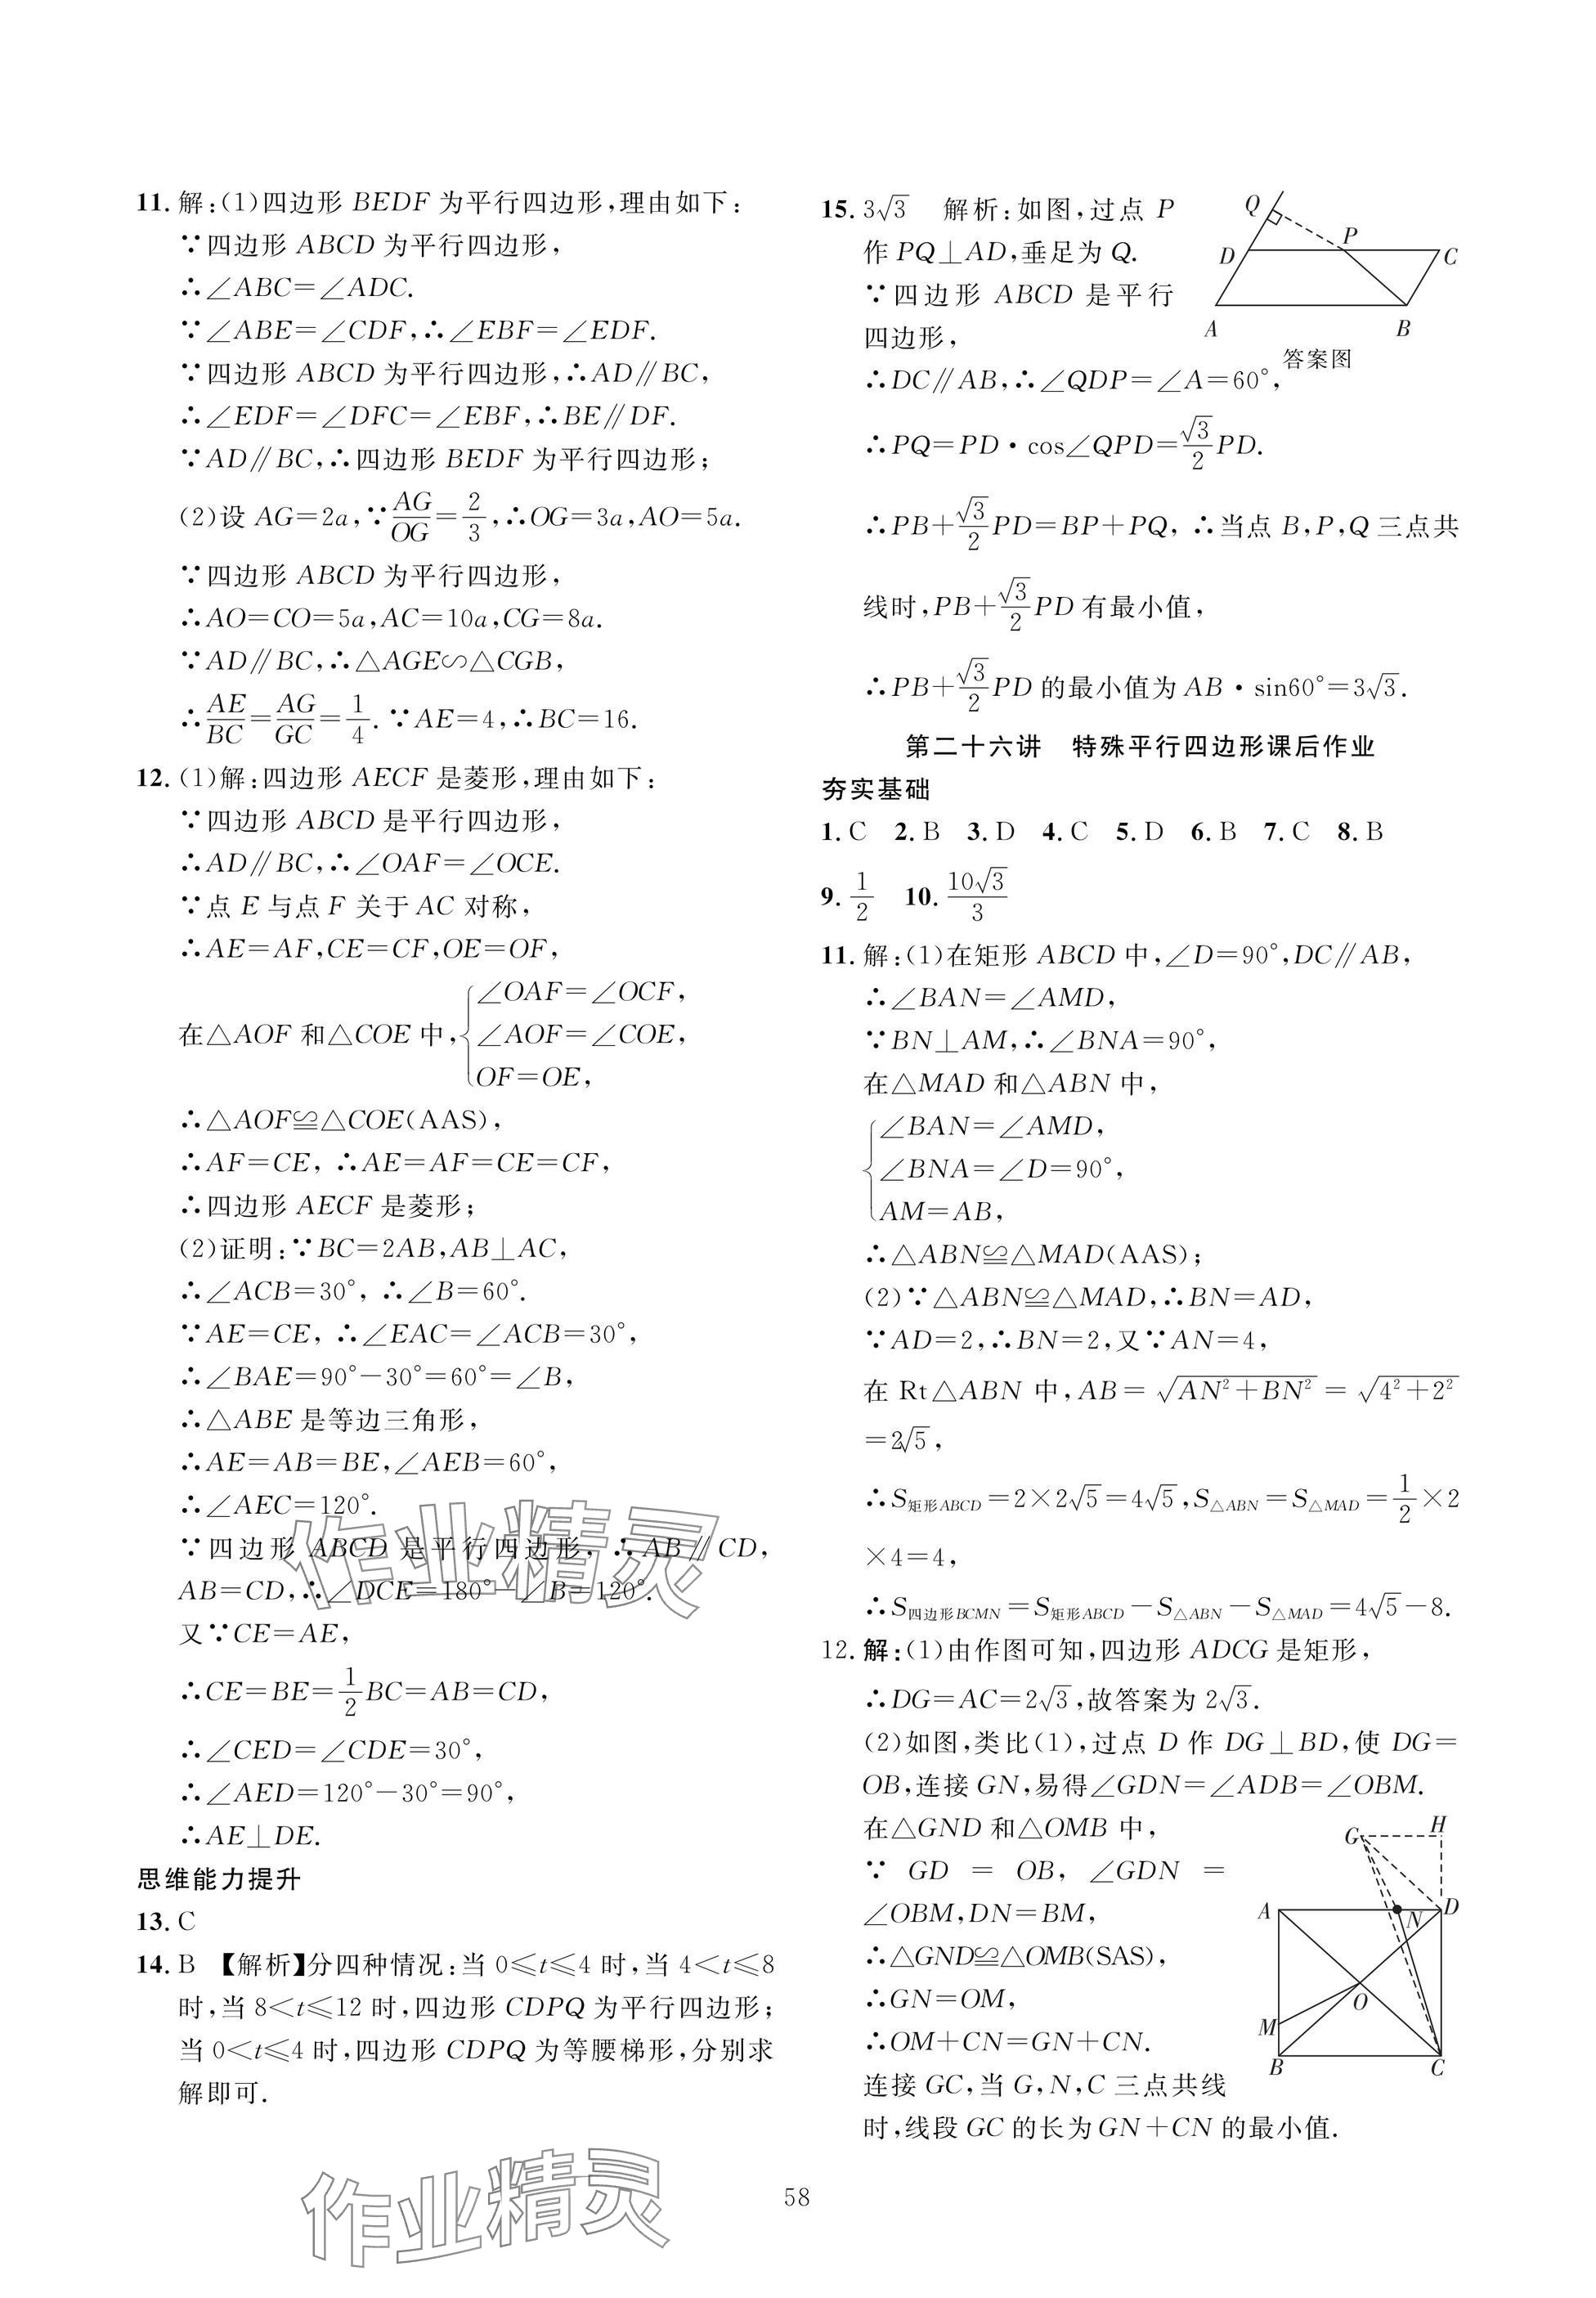 11. 解:(1)四边形 BEDF 为平行四边形,理由如下:
∵四边形 ABCD 为平行四边形,
∴∠ABC=∠ADC.
∵∠ABE=∠CDF,∴∠EBF=∠EDF.
∵四边形 ABCD 为平行四边形,∴AD∥BC,
∴∠EDF=∠DFC=∠EBF,∴BE∥DF.
∵AD∥BC,∴四边形 BEDF 为平行四边形;
(2)设 AG=2a,∵AG/OG=2/3,∴OG=3a,AO=5a.
∵四边形 ABCD 为平行四边形,
∴AO=CO=5a,AC=10a,CG=8a.
∵AD∥BC,∴△AGE∽△CGB,
∴AE/BC=AG/GC=1/4.∵AE=4,∴BC=16.
12. (1)解:四边形 AECF 是菱形,理由如下:
∵四边形 ABCD 是平行四边形,
∴AD∥BC,∴∠OAF=∠OCE.
∵点 E 与点 F 关于 AC 对称,
∴AE=AF,CE=CF,OE=OF,
∠OAF=∠OCF,
在△AOF 和△COE 中,{∠AOF=∠COE,
OF=OE,
∴△AOF≌△COE(AAS),
∴AF=CE, ∴AE=AF=CE=CF,
∴四边形 AECF 是菱形;
(2)证明:∵BC=2AB,AB⊥AC,
∴∠ACB=30°, ∴∠B=60°.
∵AE=CE, ∴∠EAC=∠ACB=30°,
∴∠BAE=90°-30°=60°=∠B,
∴△ABE 是等边三角形,
∴AE=AB=BE,∠AEB=60°,
∴∠AEC=120°.
∵四边形 ABCD 是平行四边形, ∴AB∥CD,
AB=CD,∴∠DCE=180°-∠B=120°.
又∵CE=AE,
∴CE=BE=1/2BC=AB=CD,
∴∠CED=∠CDE=30°,
∴∠AED=120°-30°=90°,
∴AE⊥DE.
思维能力提升
13. C
14. B 【解析】分四种情况:当 0≤t≤4 时,当 4<t≤8
时,当 8<t≤12 时,四边形 CDPQ 为平行四边形;
当 0<t≤4 时,四边形 CDPQ 为等腰梯形,分别求
解即可.
15. 3√3 解析:如图,过点 P
作 PQ⊥AD,垂足为 Q.
∵四边形 ABCD 是平行
四边形,
∴DC∥AB,∴∠QDP=∠A=60°,
Q
D
P
C
A
B
答案图
∴PQ=PD·cos∠QPD=√3/2PD.
∴PB+√3/2PD=BP+PQ, ∴当点 B,P,Q 三点共
线时,PB+√3/2PD 有最小值,
∴PB+√3/2PD 的最小值为 AB·sin60°=3√3.
第二十六讲 特殊平行四边形课后作业
夯实基础
1. C 2. B 3. D 4. C 5. D 6. B 7. C 8. B
9. 1/2 10. 10√3/3
11. 解:(1)在矩形 ABCD 中,∠D=90°,DC∥AB,
∴∠BAN=∠AMD,
∵BN⊥AM,∴∠BNA=90°,
在△MAD 和△ABN 中,
{∠BAN=∠AMD,
∠BNA=∠D=90°,
AM=AB,
∴△ABN≌△MAD(AAS);
(2)∵△ABN≌△MAD,∴BN=AD,
∵AD=2,∴BN=2,又∵AN=4,
在 Rt△ABN 中,AB=√(AN²+BN²)=√(4²+2²)
=2√5,
∴S矩形ABCD=2×2√5=4√5,S△ABN=S△MAD=1/2×2
×4=4,
∴S四边形BCMN=S矩形ABCD-S△ABN-S△MAD=4√5-8.
12. 解:(1)由作图可知,四边形 ADCG 是矩形,
∴DG=AC=2√3,故答案为 2√3.
(2)如图,类比(1),过点 D 作 DG⊥BD,使 DG=
OB,连接 GN,易得∠GDN=∠ADB=∠OBM.
在△GND 和△OMB 中,
∵ GD = OB, ∠GDN =
∠OBM,DN=BM,
∴△GND≌△OMB(SAS),
∴GN=OM,
∴OM+CN=GN+CN.
连接 GC,当 G,N,C 三点共线
时,线段 GC 的长为 GN+CN 的最小值.
G
H
A
N
D
O
M
B
C
58
作业精灵
作业精灵